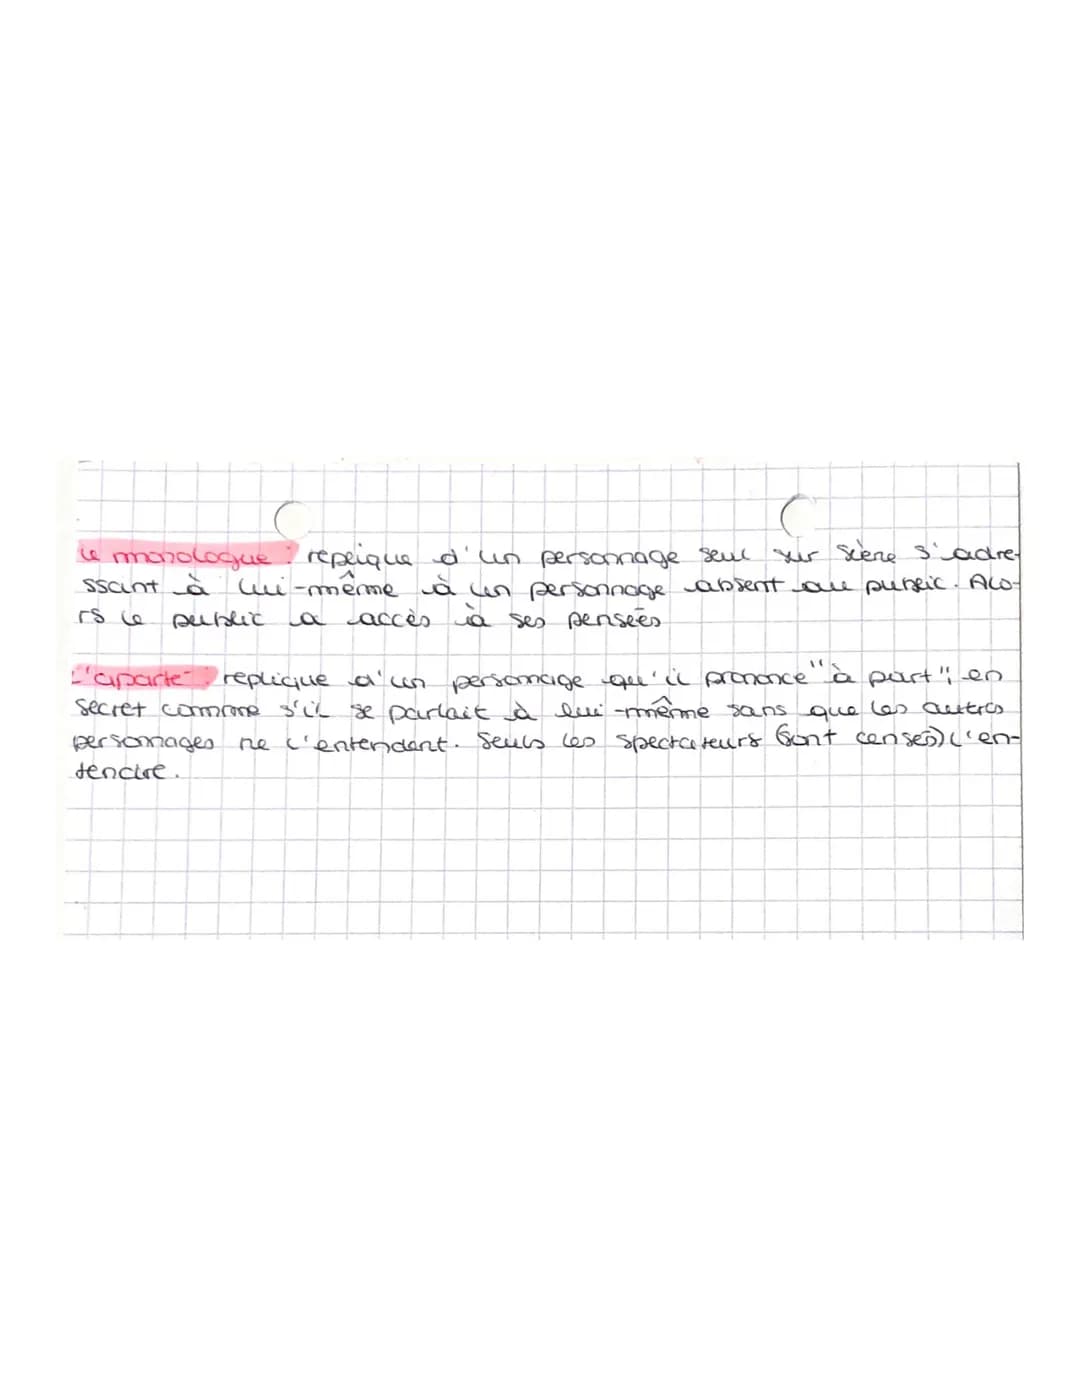 Le monologue : replique d'un personnage seul sur scène s'adre-
ssant à lui-même à un personnage absent ou public. Alo-
rs le public a accès à ses pensées
L'aparté : replique d'un personnage qu'il prononce "à part", en
secret comme s'il se parlait à lui-même sans que les autres
personnages ne l'entendent. Seuls les spectateurs (sont censés) l'en-
tendre.